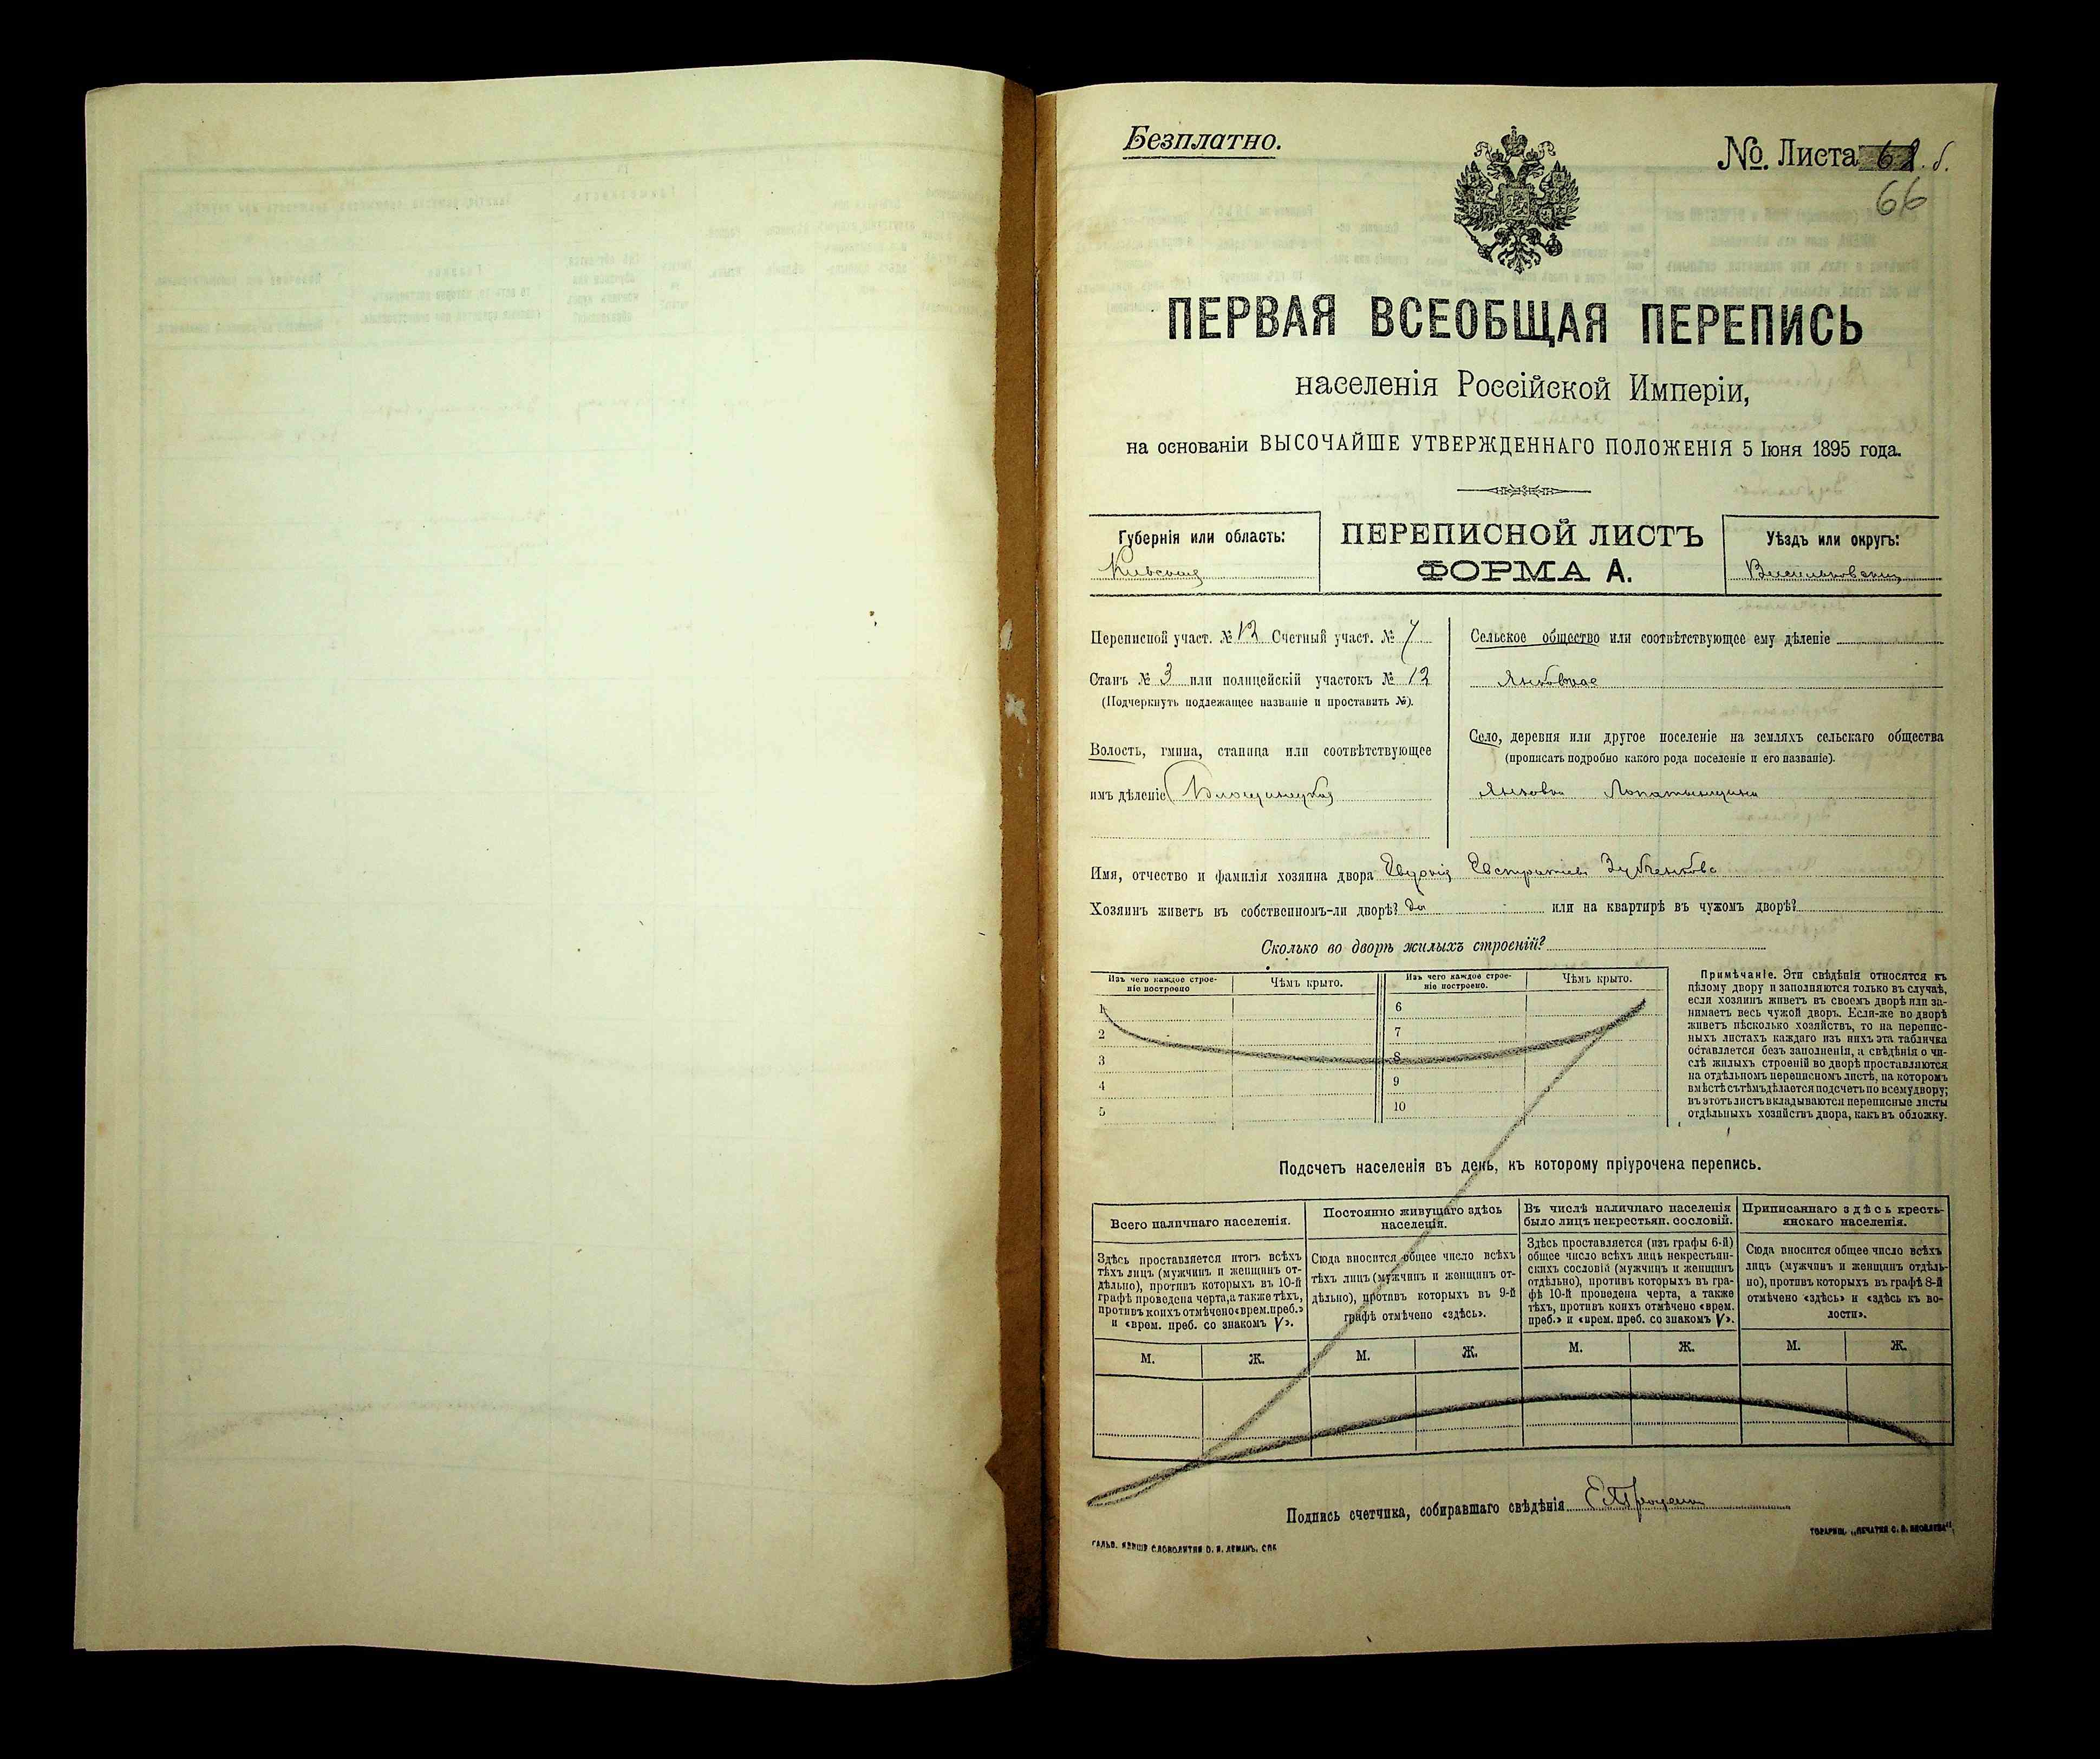 Безплатно.
№. Листа 61. б.
66
ПЕРВАЯ ВСЕОБЩАЯ ПЕРЕПИСЬ
населенія Россійской Имперіи,
на основаніи ВЫСОЧАЙШЕ УТВЕРЖДЕННАГО ПОЛОЖЕНІЯ 5 Іюня 1895 года.
Губернія или область:
Кіевская
ПЕРЕПИСНОЙ ЛИСТЪ
ФОРМА А.
Уѣздъ или округъ:
Васильковскій
Переписной участ. № 12 Счетный участ. № 7
Станъ № 3 или полицейскій участокъ № 12
(Подчеркнуть подлежащее названіе и проставить №).
Волость, гмина, станица или соотвѣтствующее
имъ дѣленіе Блощинецкая
Сельское общество или соотвѣтствующее ему дѣленіе
Янковское
Село, деревня или другое поселеніе на земляхъ сельскаго общества
(прописать подробно какого рода поселеніе и его названіе).
Янковка Лопатинщина
Имя, отчество и фамилія хозяина двора Евстратіева Зубченкова
Хозяинъ живетъ въ собственномъ-ли дворѣ? да или на квартирѣ въ чужомъ дворѣ?
Сколько во дворѣ жилыхъ строеній?
Изъ чего каждое строе-
ніе построено
Чѣмъ крыто.
Изъ чего каждое строе-
ніе построено.
Чѣмъ крыто.
1
2
3
4
5
6
7
8
9
10
Примѣчаніе. Эти свѣдѣнія относятся къ
цѣлому двору и заполняются только въ случаѣ,
если хозяинъ живетъ въ своемъ дворѣ или за-
нимаетъ весь чужой дворъ. Если-же во дворѣ
живетъ нѣсколько хозяйствъ, то на перепис-
ныхъ листахъ каждаго изъ нихъ эта табличка
оставляется безъ заполненія, а свѣдѣнія о чи-
слѣ жилыхъ строеній во дворѣ проставляются
на отдѣльномъ переписномъ листѣ, на которомъ
вмѣстѣ съ тѣмъ дѣлается подсчетъ по всему двору;
въ этотъ листъ вкладываются переписные листы
отдѣльныхъ хозяйствъ двора, какъ въ обложку.
Подсчетъ населенія въ день, къ которому пріурочена перепись.
Всего наличнаго населенія.
Здѣсь проставляется итогъ всѣхъ
тѣхъ лицъ (мужчинъ и женщинъ от-
дѣльно), противъ которыхъ въ 10-й
графѣ проведена черта, а также тѣхъ,
противъ коихъ отмѣчено «врем. преб.»
и «врем. преб. со знакомъ V».
Постоянно живущаго здѣсь
населенія.
Сюда вносится общее число всѣхъ
тѣхъ лицъ (мужчинъ и женщинъ от-
дѣльно), противъ которыхъ въ 9-й
графѣ отмѣчено «здѣсь».
Въ числѣ наличнаго населенія
было лицъ некрестьян. сословій.
Здѣсь проставляется (изъ графы 6-й)
общее число всѣхъ лицъ некрестьян-
скихъ сословій (мужчинъ и женщинъ
отдѣльно), противъ которыхъ въ гра-
фѣ 10-й проведена черта, а также
тѣхъ, противъ коихъ отмѣчено «врем.
преб.» и «врем. преб. со знакомъ V».
Приписаннаго здѣсь кресть-
янскаго населенія.
Сюда вносится общее число всѣхъ
лицъ (мужчинъ и женщинъ отдѣль-
но), противъ которыхъ въ графѣ 8-й
отмѣчено «здѣсь» и «здѣсь къ во-
лости».
М. Ж. М. Ж. М. Ж. М. Ж.
Подпись счетчика, собиравшаго свѣдѣнія
СЛОВОЛИТНЯ О. И. ЛЕМАНЪ. СПБ
ТОВАРИЩ. „ПЕЧАТНЯ С. П. ЯКОВЛЕВА“